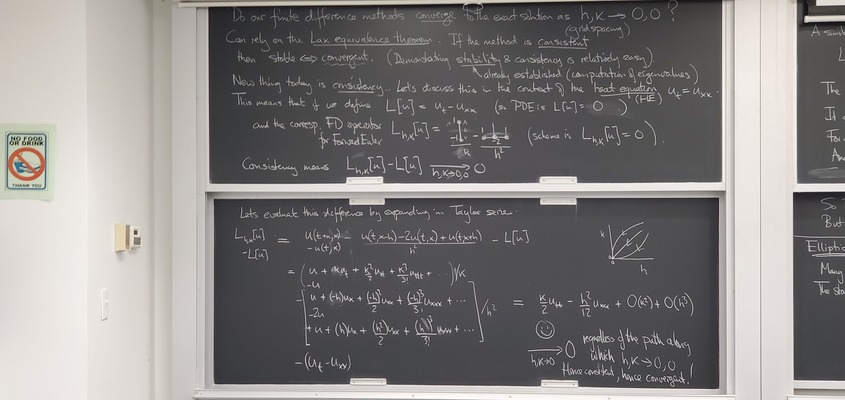 NO FOOD
OR DRINK
THANK YOU
Do our finite difference methods converge to the exact solution as h,k → 0,0 ?
(grid spacing)
Can rely on the Lax equivalence theorem. If the method is consistent
then stable ⇔ convergent. (Demonstrating stability & consistency is relatively easy)
already established (computation of eigenvalues)
New thing today is consistency. Let's discuss this in the context of the heat equation (HE) u_t = u_xx.
This means that if we define L[u] = u_t - u_xx (so PDE is L[u] = 0)
and the corresp. FD operator L_h,k[u] = (scheme is L_h,k[u] = 0).
for Forward Euler
k h²
Consistency means L_h,k[u] - L[u] → 0
h,k→0,0
Let's evaluate this difference by expanding in Taylor series.
L_h,k[u] - L[u] = u(t+k,x) - u(t,x) - u(t,x-h) - 2u(t,x) + u(t,x+h) / h² - L[u]
= (u + k u_t + k²/2 u_tt + k³/3! u_ttt + ... - u)/k
- [u + (-h)u_x + (-h)²/2 u_xx + (-h)³/3! u_xxx + ...
-2u
+u + (h)u_x + (h²)/2 u_xx + (h)³/3! u_xxx + ...] /h²
- (u_t - u_xx)
= k/2 u_tt - h²/12 u_xxxx + O(k²) + O(h³)
→ 0 regardless of the path along
h,k→0 which h,k → 0,0
Hence consistent, hence convergent!
k
h
A simple
L
The
It
For
An
So
But
Elliptic
Many
The